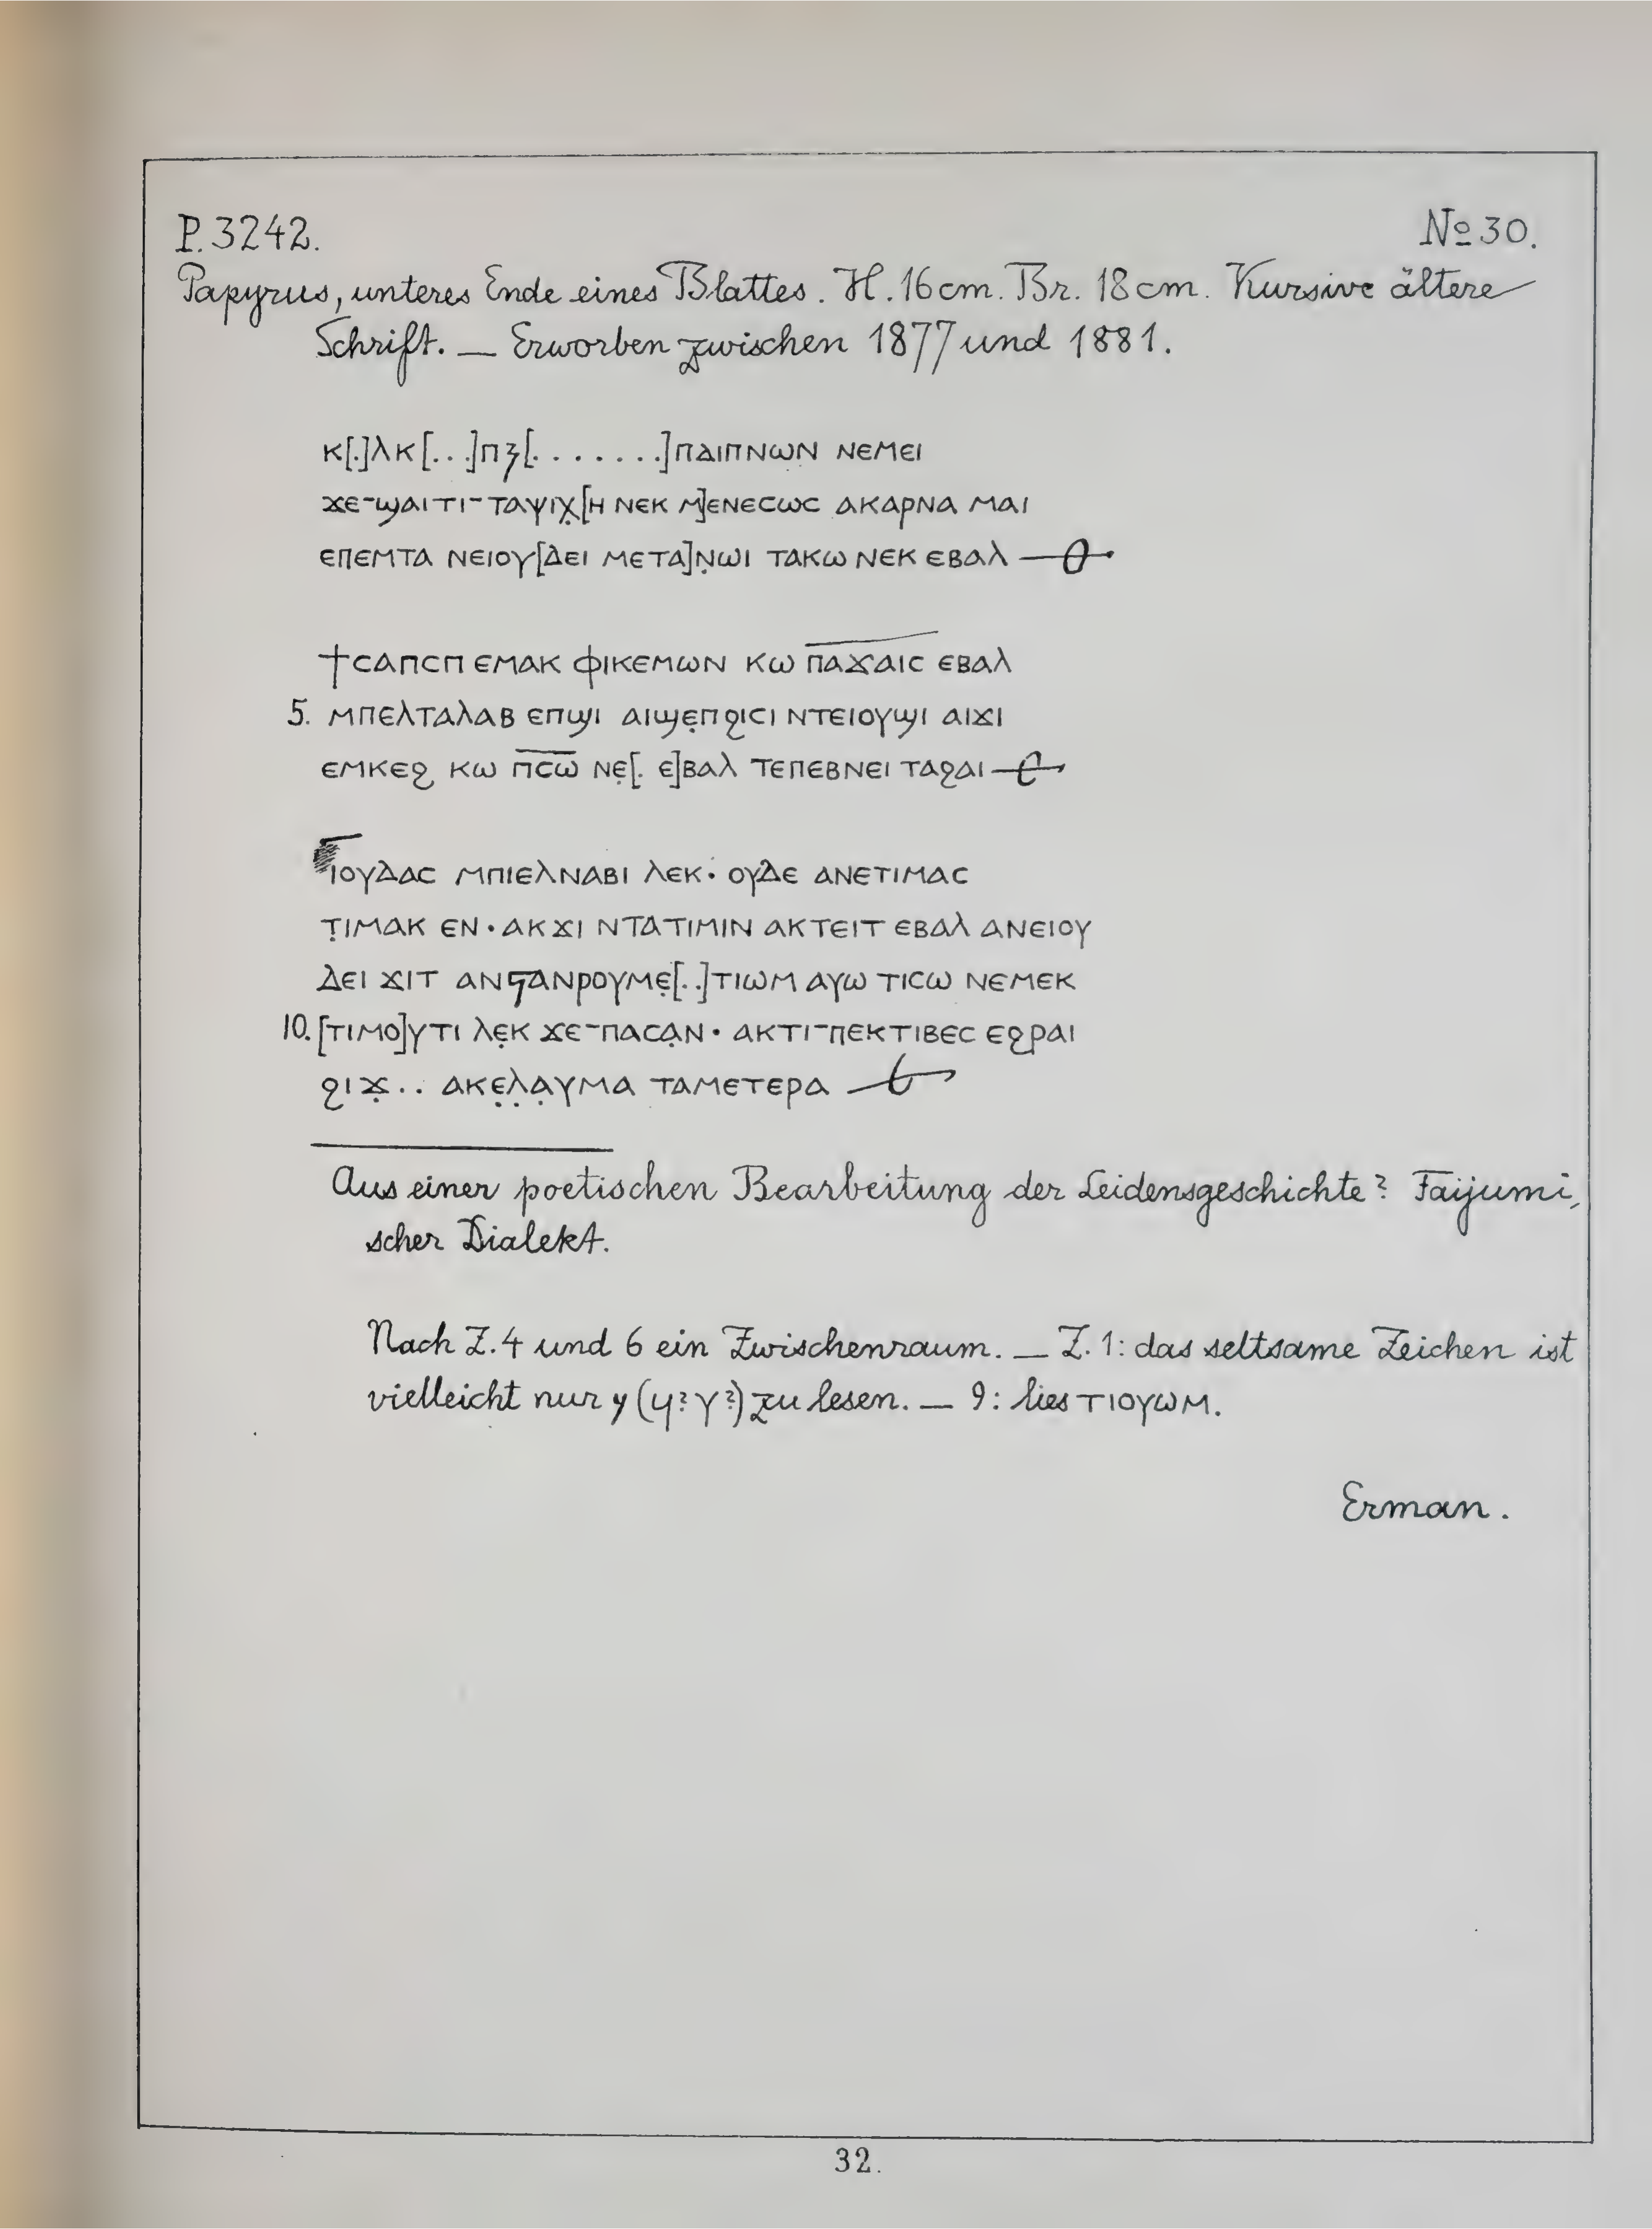 P. 3242. № 30.
Papyrus, unteres Ende eines Blattes. H. 16 cm. Br. 18 cm. Kursive ältere
Schrift. — Erworben zwischen 1877 und 1881.
ⲕ[.]ⲗⲕ[...]ⲡⳅ[.......]ⲡⲁⲓⲡⲛⲱⲛ ⲛⲉⲙⲉⲓ
ϫⲉ-ϣⲁⲓⲧⲓ-ⲧⲁⲯⲓⲭ̣[ⲏ ⲛⲉⲕ ⲙ]ⲉⲛⲉⲥⲱⲥ ⲁⲕⲁⲣⲛⲁ ⲙⲁⲓ
ⲉⲡⲉⲙⲧⲁ ⲛⲉⲓⲟⲩ[ⲇⲉⲓ ⲙⲉⲧⲁ]ⲛ̣ⲱⲓ ⲧⲁⲕⲱ ⲛⲉⲕ ⲉⲃⲁⲗ
†ⲥⲁⲡⲥⲡ ⲉⲙⲁⲕ ⲫⲓⲕⲉⲙⲱⲛ ⲕⲱ ⲡ̅ⲁ̅ϫ̅ⲁ̅ⲓ̅ⲥ̅ ⲉⲃⲁⲗ
5. ⲙⲡⲉⲗⲧⲁⲗⲁⲃ ⲉⲡϣⲓ ⲁⲓϣⲉ̣ⲡϩⲓⲥⲓ ⲛⲧⲉⲓⲟⲩϣⲓ ⲁⲓϫⲓ
ⲉⲙⲕⲉϩ ⲕⲱ ⲡ̅ⲥ̅ⲱ̅ ⲛⲉ̣[. ⲉ]ⲃⲁⲗ ⲧⲉⲡⲉⲃⲛⲉⲓ ⲧⲁϩⲁⲓ
ⲓⲟⲩⲇⲁⲥ ⲙⲡⲓⲉⲗⲛⲁⲃⲓ ⲗⲉⲕ· ⲟⲩⲇⲉ ⲁⲛⲉⲧⲓⲙⲁⲥ
ⲧ̣ⲓⲙⲁⲕ ⲉⲛ· ⲁⲕϫⲓ ⲛⲧⲁⲧⲓⲙⲓⲛ ⲁⲕⲧⲉⲓⲧ ⲉⲃⲁⲗ ⲁⲛⲉⲓⲟⲩ
ⲇⲉⲓ ϫⲓⲧ ⲁⲛϭⲁⲛⲣⲟⲩⲙⲉ̣[..]ⲧⲓⲱⲙ ⲁⲩⲱ ⲧⲓⲥⲱ ⲛⲉⲙⲉⲕ
10. [ⲧⲓⲙⲟ]ⲩⲧⲓ ⲗⲉ̣ⲕ ϫⲉ-ⲡⲁⲥⲁ̣ⲛ· ⲁⲕⲧⲓ-ⲡⲉⲕⲧⲓⲃⲉⲥ ⲉϩⲣⲁⲓ
ϩⲓϫ̣.. ⲁⲕⲉ̣ⲗ̣ⲁ̣ⲩⲙⲁ ⲧⲁⲙⲉⲧⲉⲣⲁ
Aus einer poetischen Bearbeitung der Leidensgeschichte? Faijumi-
scher Dialekt.
Nach Z. 4 und 6 ein Zwischenraum. — Z. 1: das seltsame Zeichen ist
vielleicht nur y (ϥ? ⲩ?) zu lesen. — 9: lies ⲧⲓⲟⲩⲱⲙ.
Erman.
32.